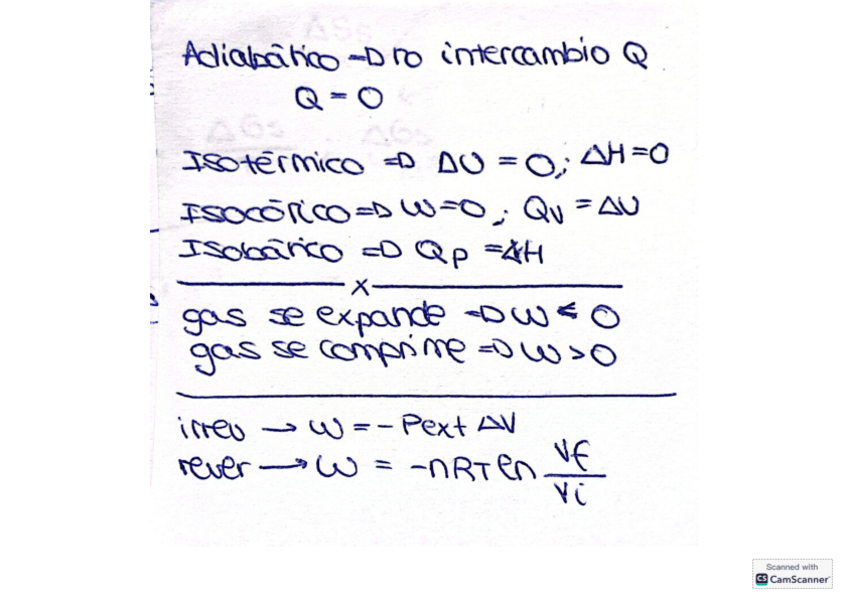 Adiabático => no intercambio Q
Q = 0
Isotérmico => ΔU = 0; ΔH=0
Isocórico => W=0; Qv = ΔU
Isobárico => Qp = ΔH
x
gas se expande => W < 0
gas se comprime => W > 0
irrev → W = - Pext ΔV
rever → W = -nRT ln Vf/Vi
Scanned with
CS CamScanner